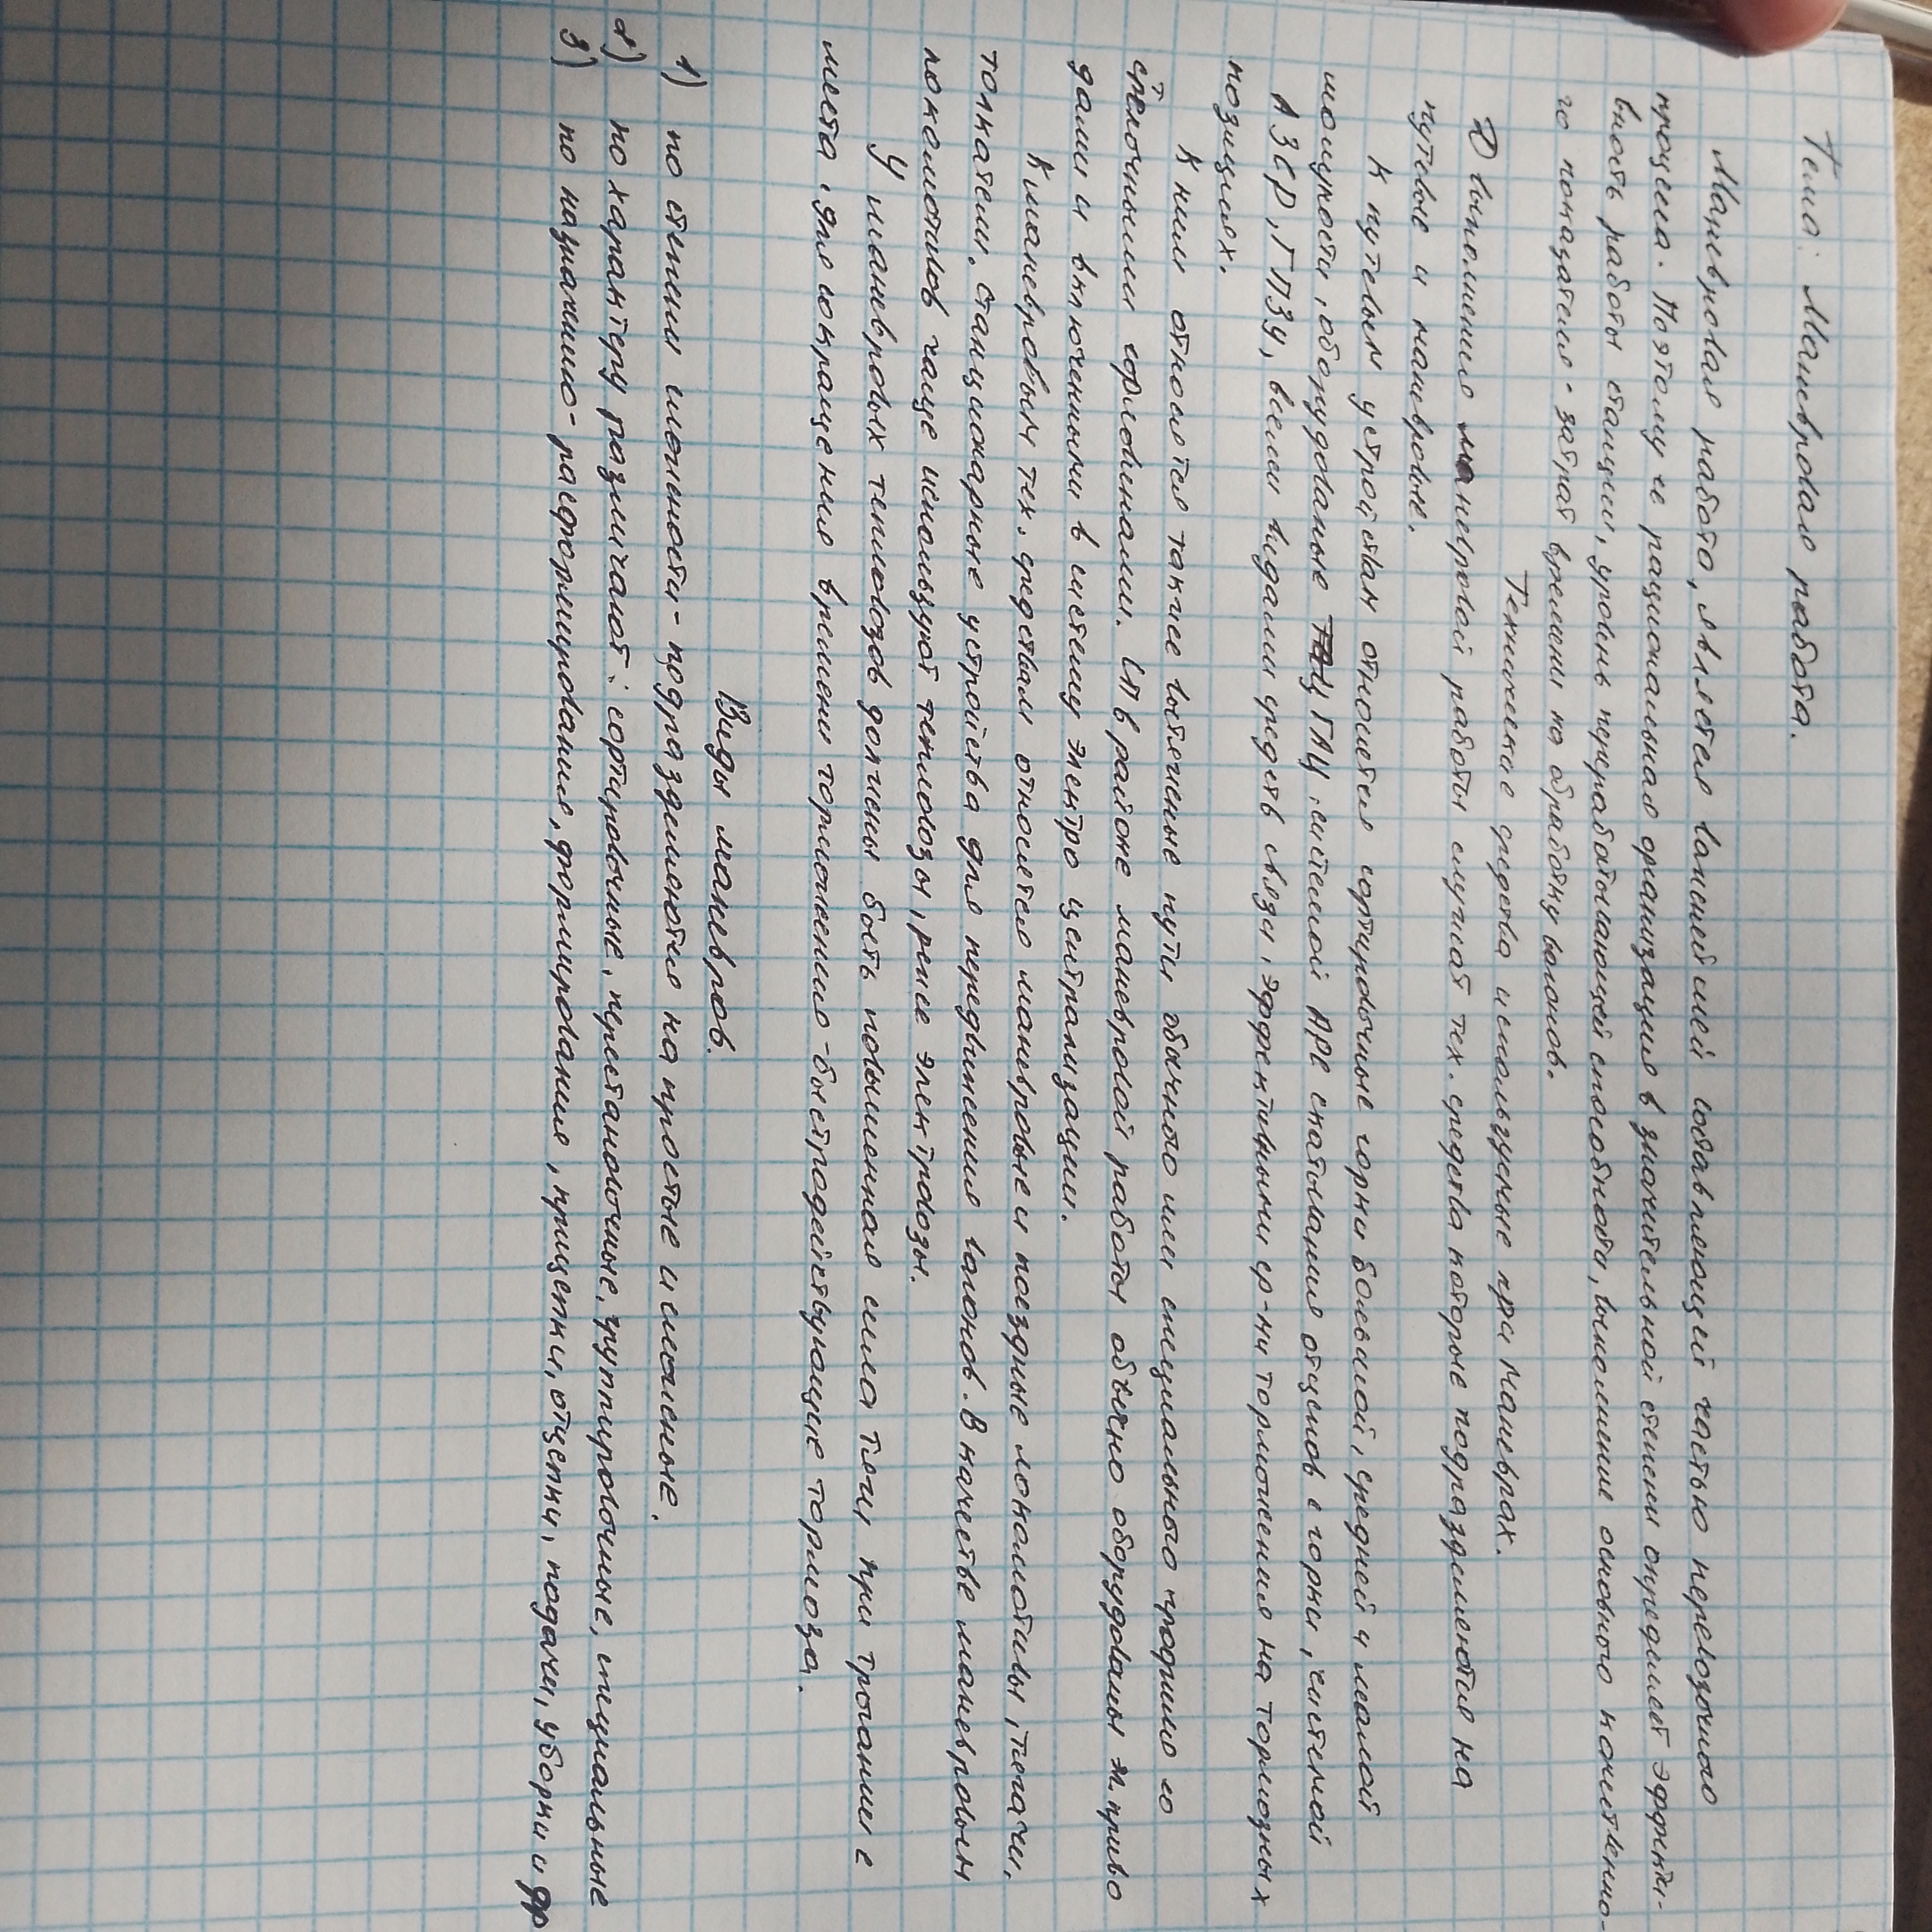 Тема: Маневровая работа.
Маневровая работа, является важнейшей составляющей частью перевозочного
процесса. Поэтому ее рациональная организация в значительной степени определяет эффекти-
вность работы станции, уровень перерабатывающей способности, выполнение основного качественно-
го показателя - затрат времени на обработку вагонов.
Технические средства используемые при маневрах.
Д выполнения маневровой работы служат тех. средства которые подразделяются на
путевые и маневровые.
К путевым устройствам относятся сортировочные горки большой, средней и малой
мощности, оборудованые ГАЦ, системой АРС скатывания отцепов с горки, системой
АЗСР, ГПЗУ, всеми видами средств связи, эффективными ср-ми торможения на тормозных
позициях.
К ним относятся также вытяжные пути обычного или специального профиля со
стрелочными горловинами. СП в районе маневровой работы обычно оборудованы эл. приво
дами и включенными в систему электро централизации.
К маневровым тех. средствам относятся маневровые и поездные локомотивы, тягачи,
толкатели, стационарные устройства для передвижения вагонов. В качестве маневровых
локомотивов чаще используют тепловозы, реже электровозы.
У маневровых тепловозов должены быть повышенная сила тяги при трогании с
места, для сокращения времени торможения - быстродействующие тормоза.
Виды маневров.
1) по степени сложности - подразделяются на простые и сложные.
2) по характеру различают: сортировочные, перестановочные, группировочные, специальные
3) по назначению - расформирования, формирования, прицепки, отцепки, подачи, уборки и др